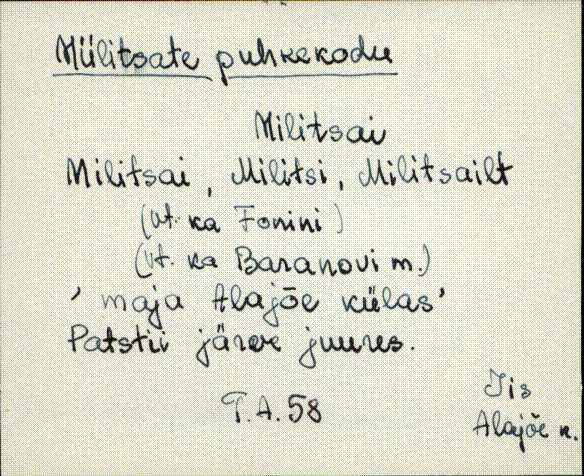 Miilitsate puhkekodu
Militsai
Militsai, Militsi, Militsailt
(vt. ka Fonini)
(vt. ka Baranovi m.)
'maja Alajõe külas'
Patstii järve juures.
T.A. 58
Iis
Alajõe k.